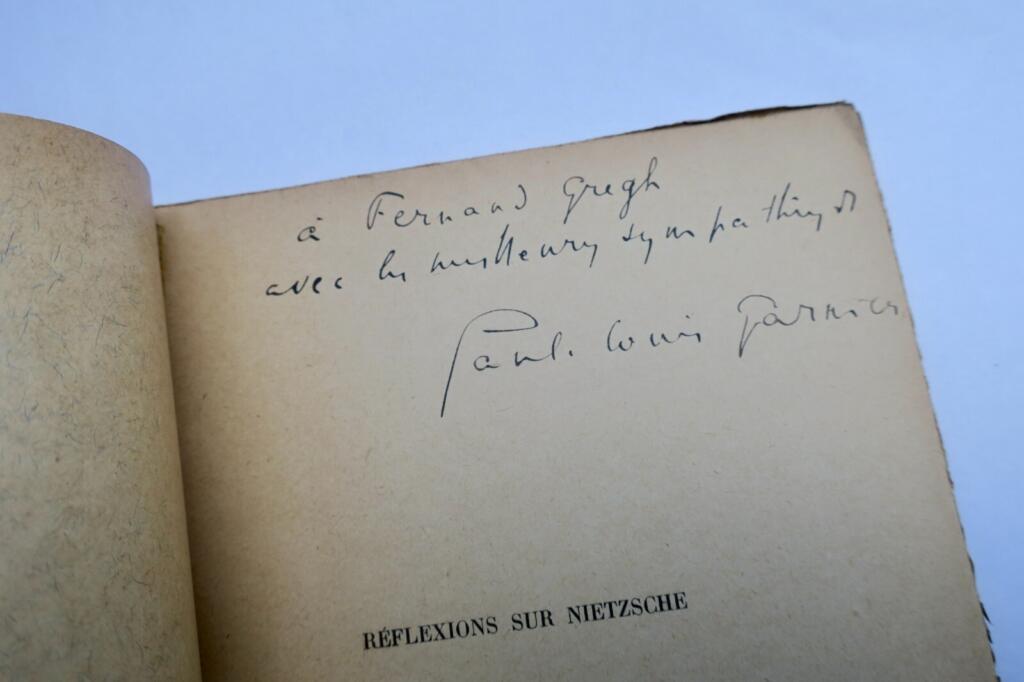 à Fernand Gregh
avec les meilleures sympathies
Paul-Louis Garnier
RÉFLEXIONS SUR NIETZSCHE